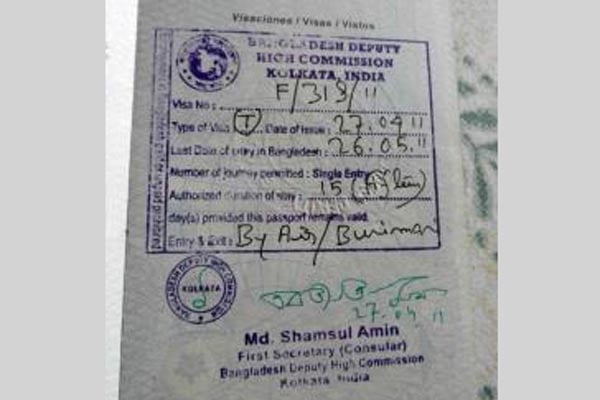 Visaciones / Visas / Vistos
BANGLADESH DEPUTY
HIGH COMMISSION
KOLKATA, INDIA
Visa No : F/318/11
Type of Visa (T) Date of Issue : 27.04.11
Last Date of entry in Bangladesh : 26.05.11
Number of journey permitted : Single Entry
Authorized duration of stay : 15 (fifteen)
day(s) provided this passport remains valid.
Entry & Exit : By Air / Burimari
BANGLADESH DEPUTY HIGH COMMISSION
KOLKATA
27.04.11
Md. Shamsul Amin
First Secretary (Consular)
Bangladesh Deputy High Commission
Kolkata, India